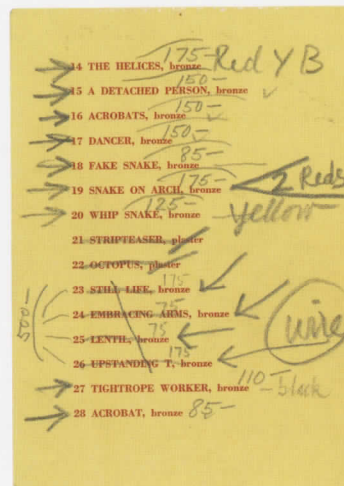 175-
14 THE HELICES, bronze Red Y B
150-
15 A DETACHED PERSON, bronze
150-
16 ACROBATS, bronze
150-
17 DANCER, bronze
85-
18 FAKE SNAKE, bronze
175- 2 Reds
19 SNAKE ON ARCH, bronze
125-
20 WHIP SNAKE, bronze - yellow
21 STRIPTEASER, plaster
22 OCTOPUS, plaster
175
23 STILL LIFE, bronze
75
500- 24 EMBRACING ARMS, bronze wire
75
25 LENTIL, bronze
175
26 UPSTANDING T, bronze
110 - black
27 TIGHTROPE WORKER, bronze
28 ACROBAT, bronze 85-